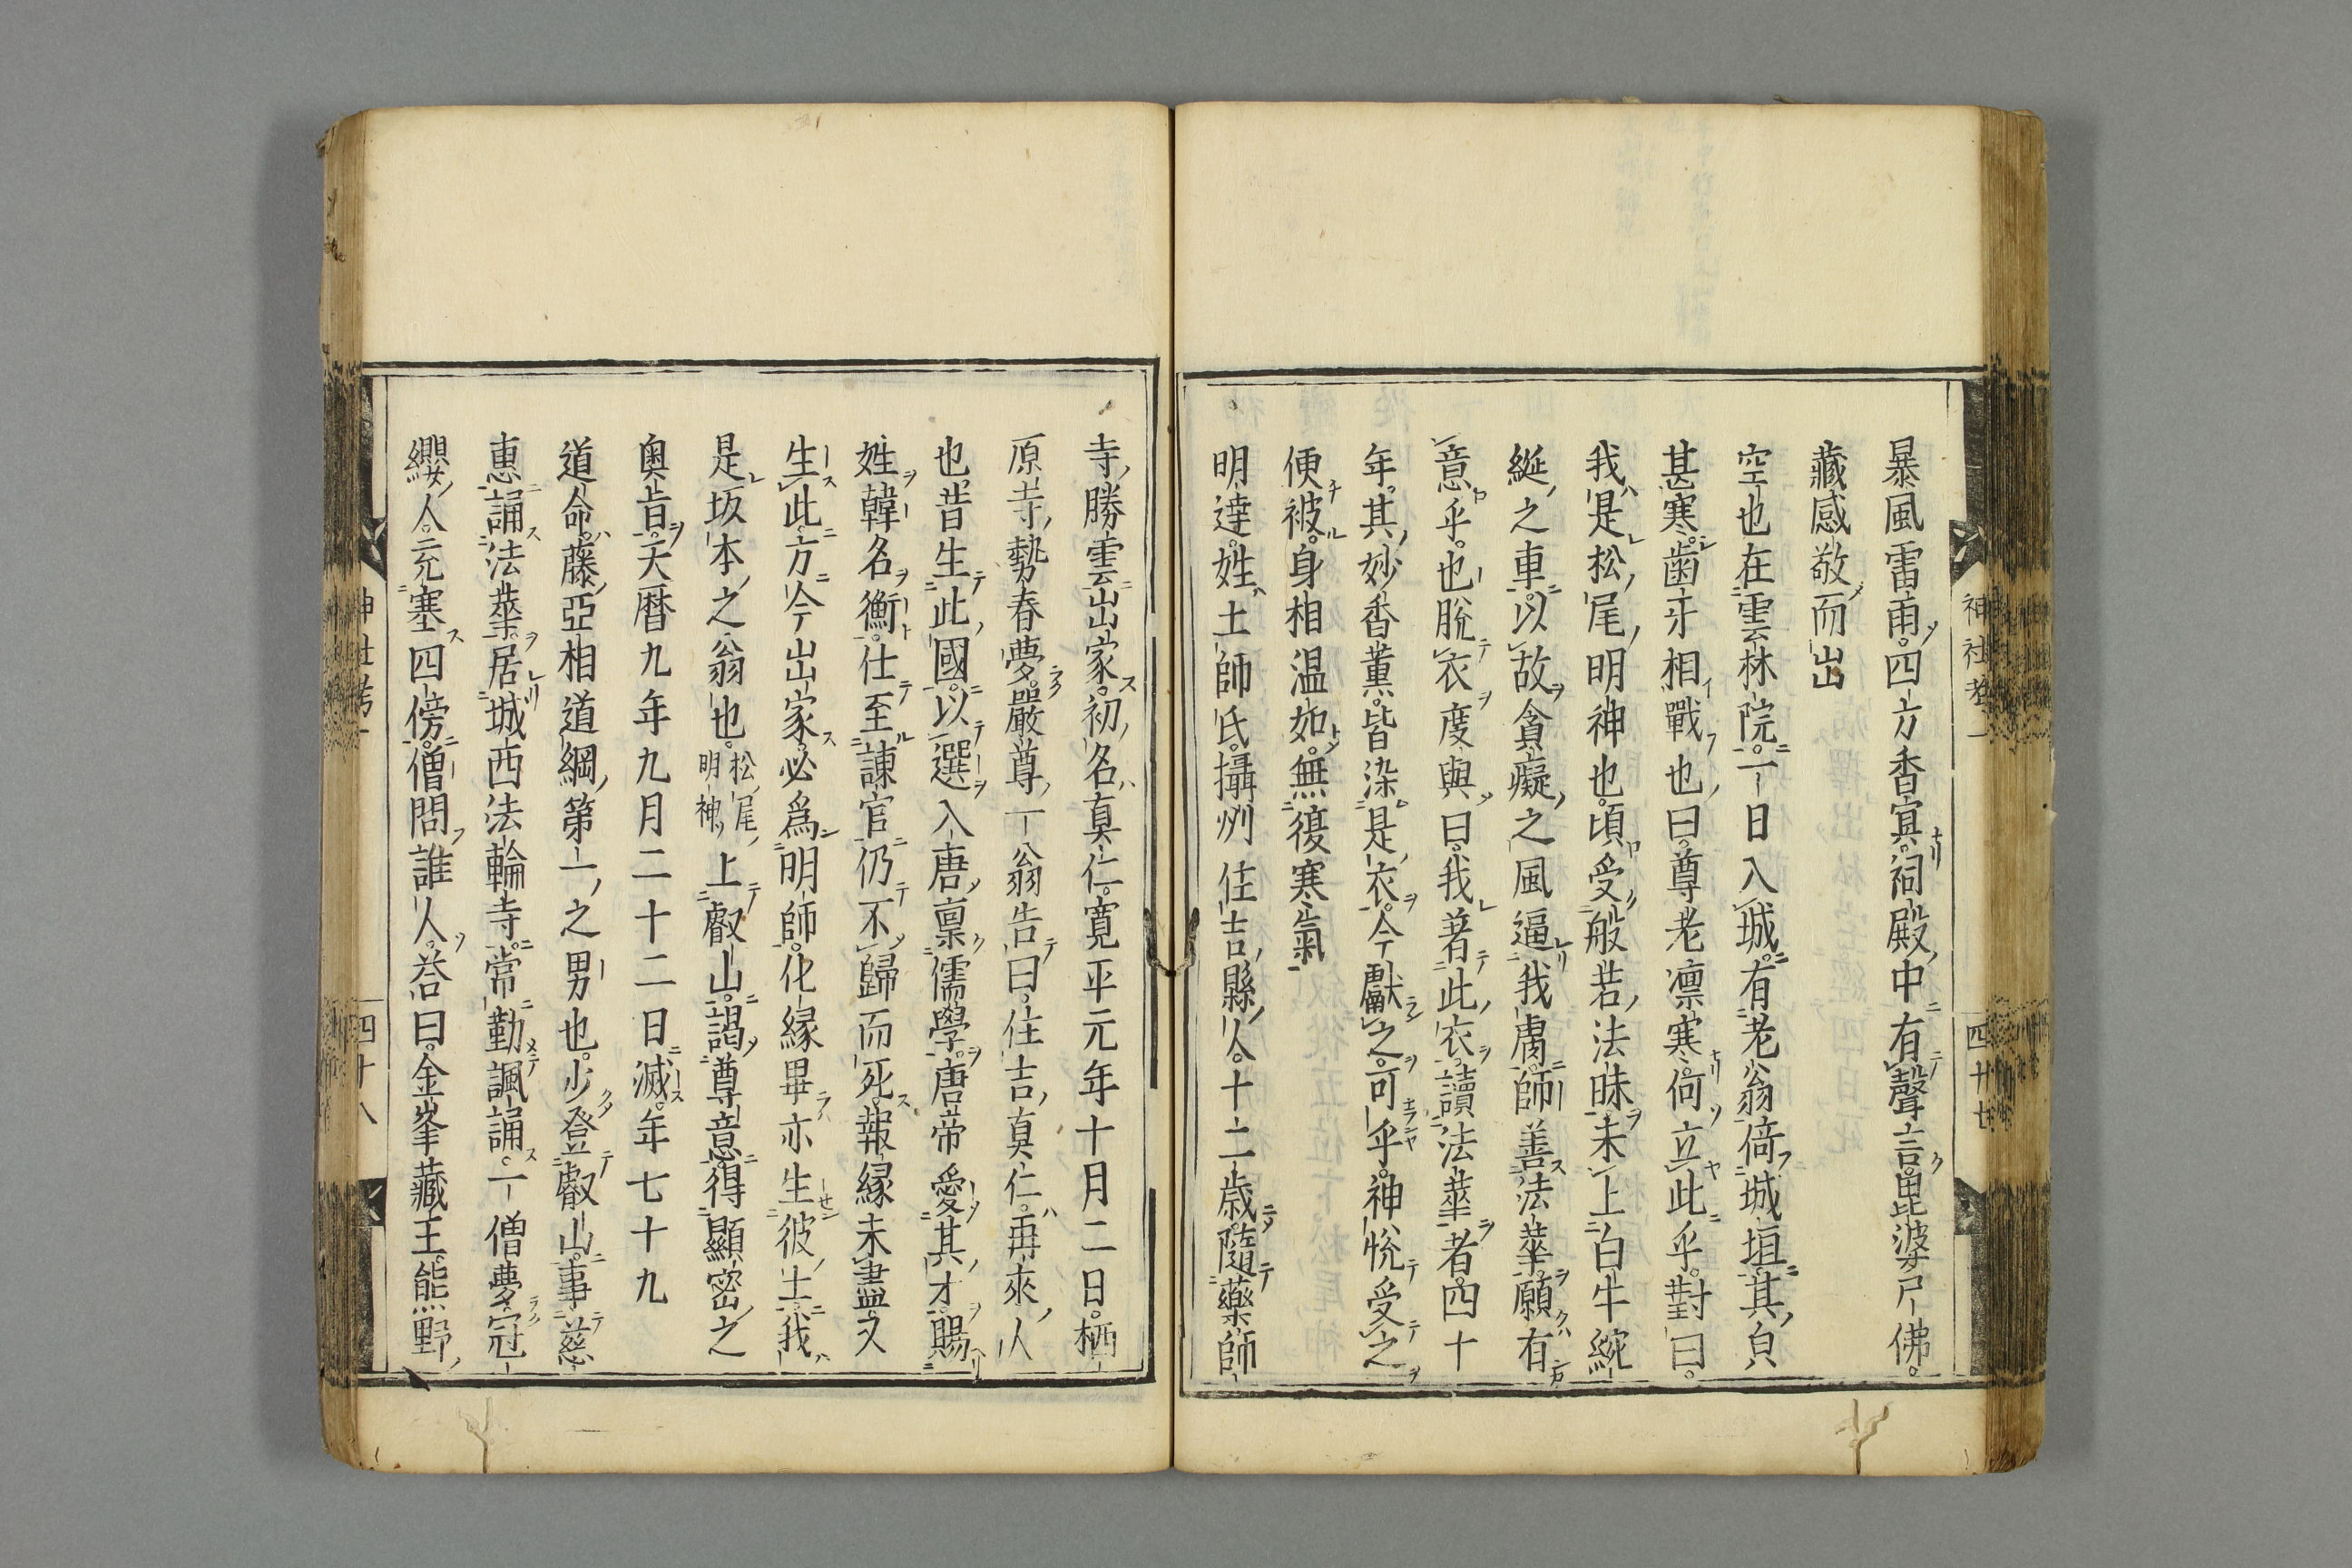 神社考一 四十七
暴風雷雨。四方杳冥。祠殿中有聲言。毘婆尸佛。
藏感敬而出
空也在雲林院。一日入城。有老翁倚城垣。其皃
甚寒。齒牙相戰也。曰。尊老凛寒。何立此乎。對曰。
我是松尾明神也。頃受般若法味。未上白牛綩
綖之車。以故貪癡之風逼我膚。師善法華。願有
意乎。也脫衣度與曰。我著此衣。讀法華者四十
年。其妙香薰。皆染是衣。今獻之。可乎。神悅受之
便被。身相温如。無復寒氣
明達。姓土師氏。攝州住吉縣人。十二歲。隨藥師
寺勝雲出家。初名真仁。寛平元年十月二日。栖
原寺勢春夢。嚴尊一翁告曰。住吉真仁。再來人
也。昔生此國。以選入唐。禀儒學。唐帝愛其才。賜
姓韓名衡。仕至諫官。仍不歸而死。報緣未盡。又
生此方。今出家。必爲明師。化縁畢亦生彼土。我
是坂本之翁也。松尾明神 上叡山。謁尊意。得顯密之
奧旨。天曆九年九月二十二日滅。年七十九
道命。藤亞相道綱第一之男也。少登叡山。事慈
惠。誦法華。居城西法輪寺。常勤諷誦。一僧夢。冠
纓人充塞四傍。僧問誰人。荅曰。金峯藏王。熊野
神社考一 四十八